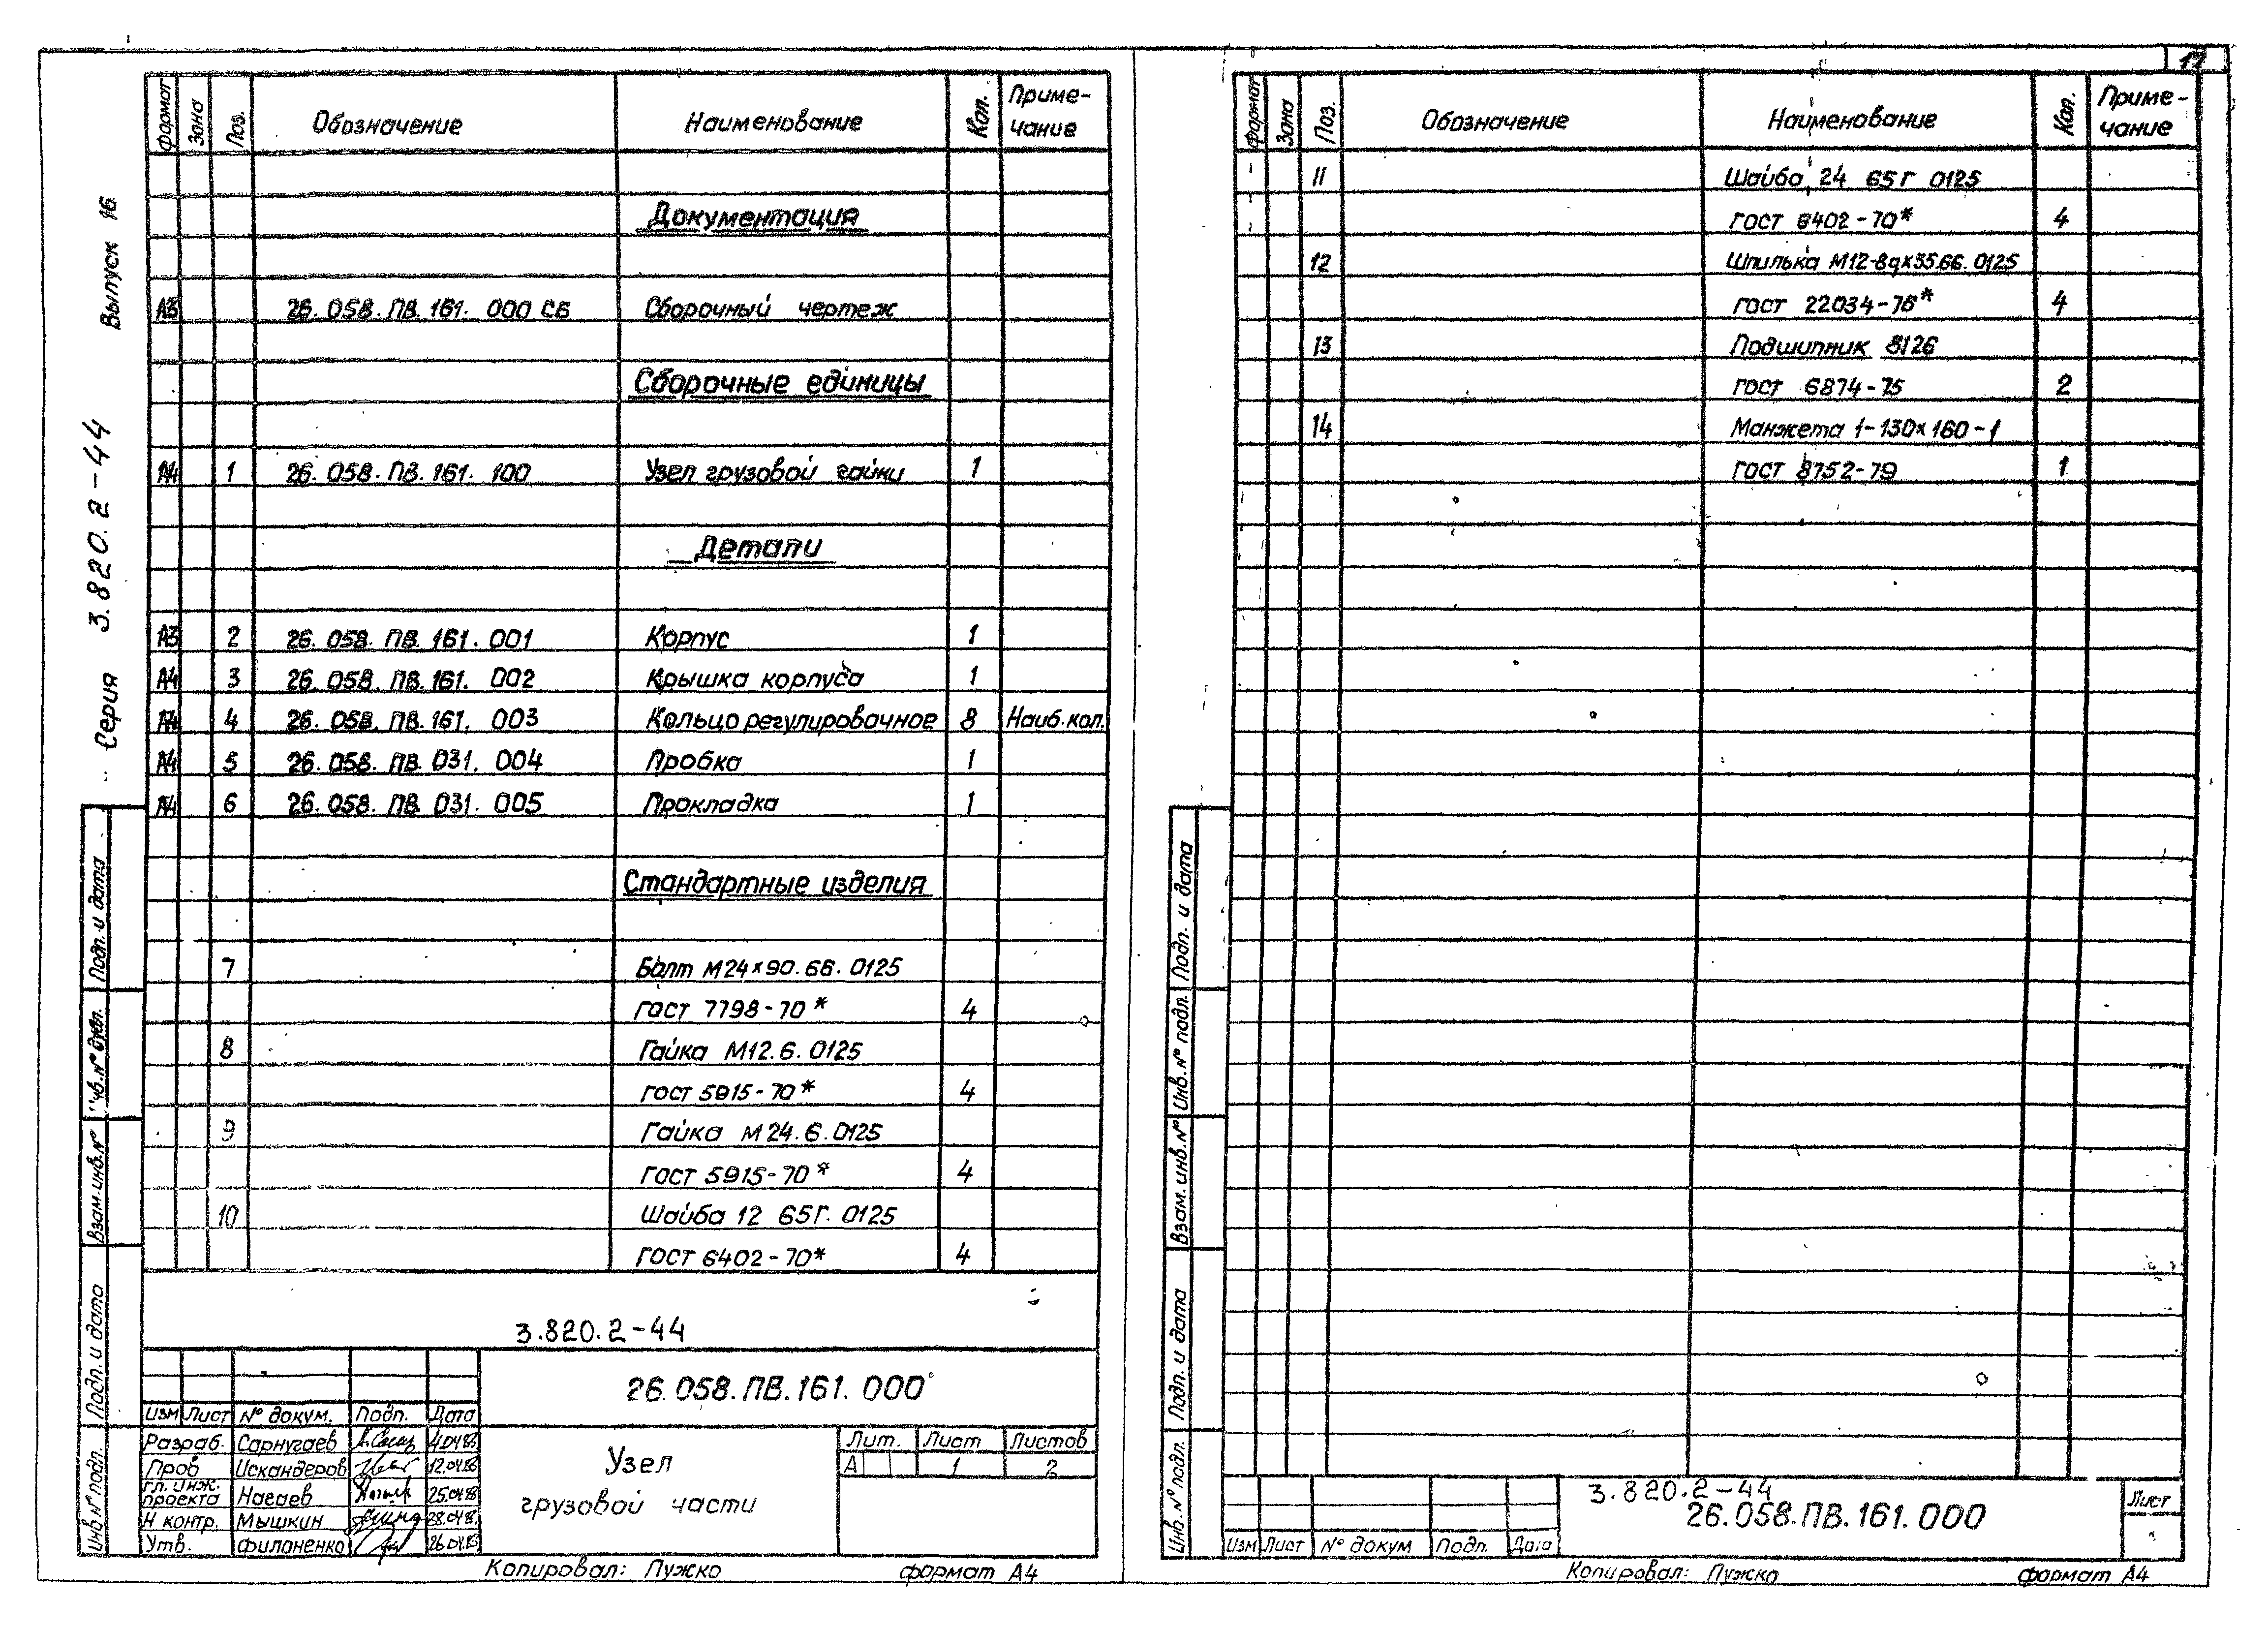 17
Серия 3.820.2-44 Выпуск 16
Формат Зона Поз. Обозначение Наименование Кол. Приме-
чание
Документация
А3 26.058.ПВ.161.000 СБ Сборочный чертеж
Сборочные единицы
А4 1 26.058.ПВ.161.100 Узел грузовой гайки 1
Детали
А3 2 26.058.ПВ.161.001 Корпус 1
А4 3 26.058.ПВ.161.002 Крышка корпуса 1
А4 4 26.058.ПВ.161.003 Кольцо регулировочное 8 Наиб.кол.
А4 5 26.058.ПВ.031.004 Пробка 1
А4 6 26.058.ПВ.031.005 Прокладка 1
Стандартные изделия
7 Болт М24×90.66.0125
ГОСТ 7798-70* 4
8 Гайка М12.6.0125
ГОСТ 5915-70* 4
9 Гайка М24.6.0125
ГОСТ 5915-70* 4
10 Шайба 12 65Г.0125
ГОСТ 6402-70* 4
3.820.2-44
26.058.ПВ.161.000
Изм Лист № докум. Подп. Дата
Разраб. Сарнугаев
Пров Искандеров 12.04.83
Гл. инж.
проекта Нагаев 25.04.83
Н контр. Мышкин
Утв. Филоненко 26.04.83
Узел
грузовой части
Лит. Лист Листов
А 1 2
Копировал: Пужко формат А4
Подп. и дата
Взам.инв.№
Подп. и дата
Инв.№ подл.
Формат Зона Поз. Обозначение Наименование Кол. Приме-
чание
11 Шайба 24 65Г 0125
ГОСТ 6402-70* 4
12 Шпилька М12-8g×35.66.0125
ГОСТ 22034-76* 4
13 Подшипник 8126
ГОСТ 6874-75 2
14 Манжета 1-130×160-1
ГОСТ 8752-79 1
Подп. и дата
Инв.№ подл.
Взам.инв.№
Подп. и дата
Инв.№ подл.
3.820.2-44
26.058.ПВ.161.000
Лист
Изм Лист № докум Подп. Дата
Копировал: Пужко формат А4